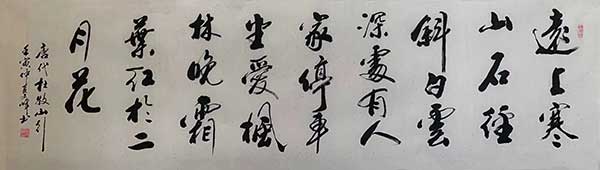 遠上寒
山石徑
斜白雲
深處有人
家停車
坐愛楓
林晚霜
葉紅於二
月花
唐代杜牧山行
壬寅仲夏